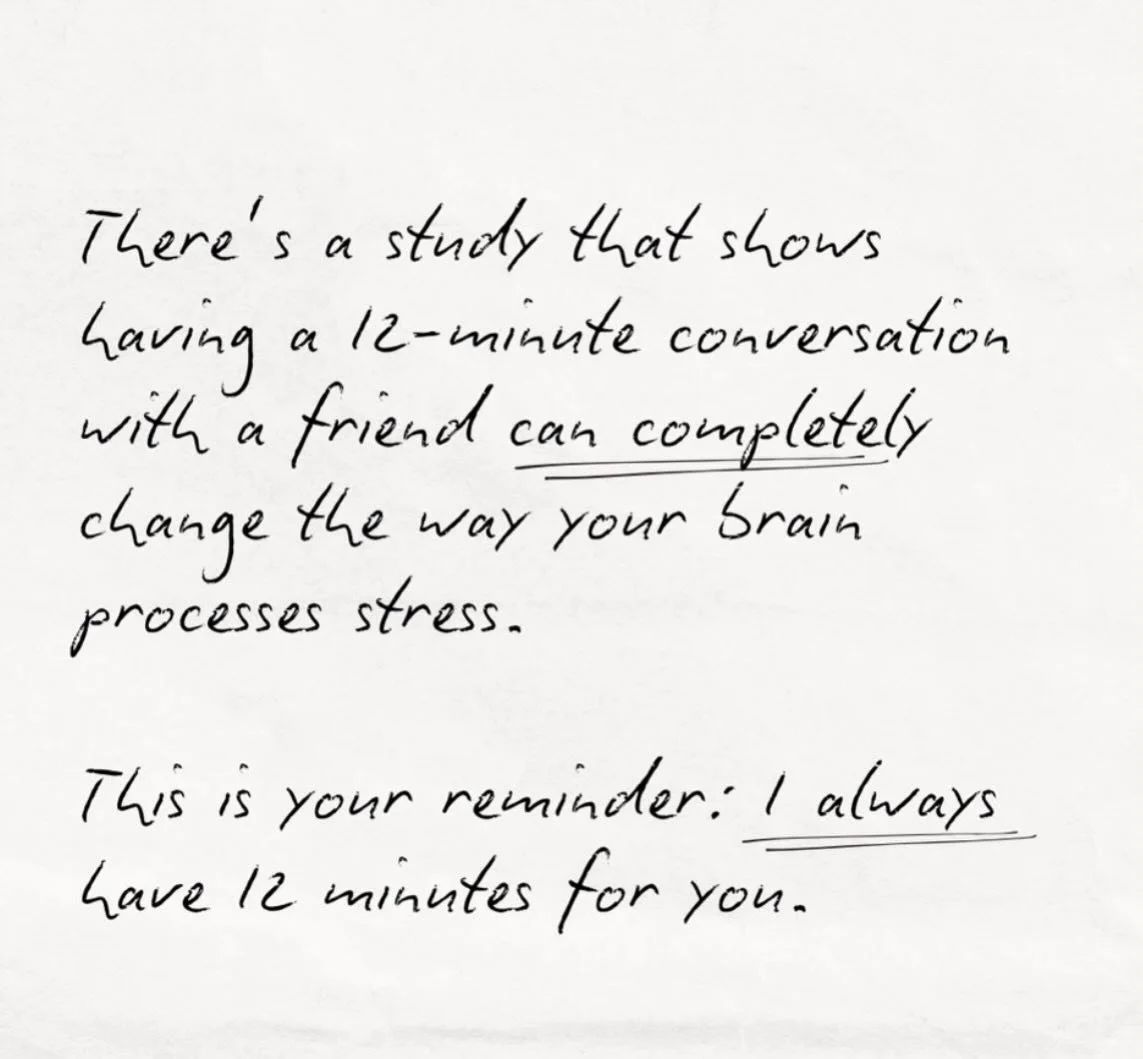 There's a study that shows
having a 12-minute conversation
with a friend can completely
change the way your brain
processes stress.
This is your reminder: I always
have 12 minutes for you.